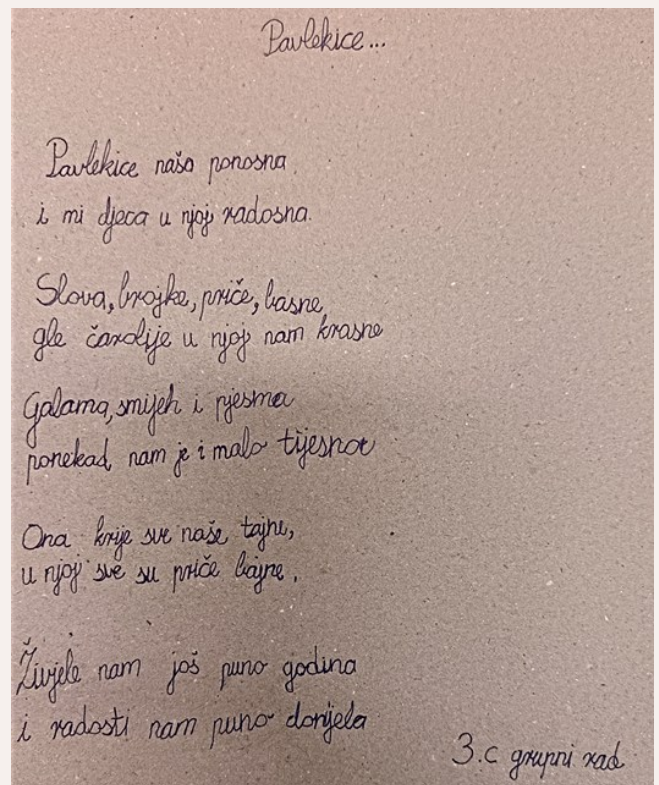 Pavlekice...
Pavlekice naša ponosna
i mi djeca u njoj radosna.
Slova, brojke, priče, basne,
gle čarolije u njoj nam krasne
Galama, smijeh i pjesma
ponekad nam je i malo tijesno
Ona krije sve naše tajne,
u njoj sve su priče bajne.
Živjele nam još puno godina
i radosti nam puno donijela
3.c grupni rad